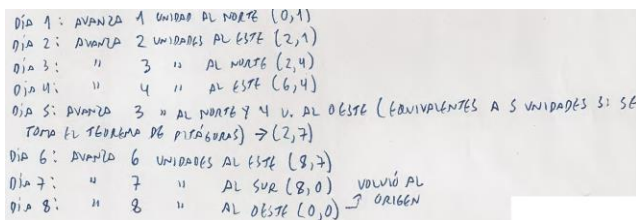 DÍA 1: AVANZA 1 UNIDAD AL NORTE (0,1)
DÍA 2: AVANZA 2 UNIDADES AL ESTE (2,1)
DÍA 3: " 3 " AL NORTE (2,4)
DÍA 4: " 4 " AL ESTE (6,4)
DÍA 5: AVANZA 3 " AL NORTE Y 4 U. AL OESTE (EQUIVALENTES A 5 UNIDADES SI SE
TOMA EL TEOREMA DE PITÁGORAS) → (2,7)
DÍA 6: AVANZA 6 UNIDADES AL ESTE (8,7)
DÍA 7: " 7 " AL SUR (8,0) VOLVIÓ AL
DÍA 8: " 8 " AL OESTE (0,0) ORIGEN